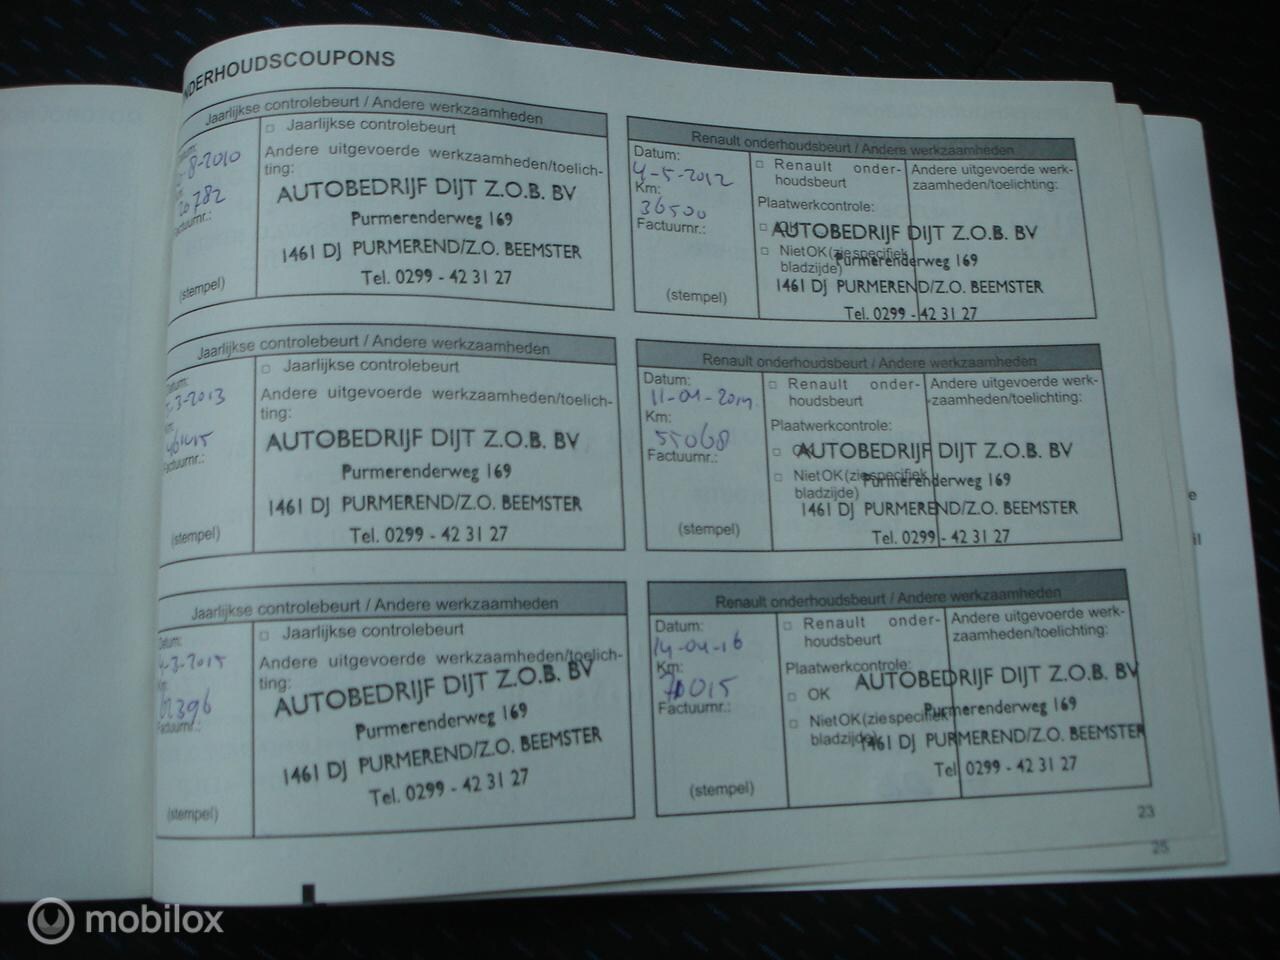 NDERHOUDSCOUPONS
Jaarlijkse controlebeurt / Andere werkzaamheden
-8-2010
20782
Factuurnr.:
(stempel)
□ Jaarlijkse controlebeurt
Andere uitgevoerde werkzaamheden/toelich-
ting:
AUTOBEDRIJF DIJT Z.O.B. BV
Purmerenderweg 169
1461 DJ PURMEREND/Z.O. BEEMSTER
Tel. 0299 - 42 31 27
Renault onderhoudsbeurt / Andere werkzaamheden
Datum:
4-5-2012
Km:
36500
Factuurnr.:
(stempel)
□ Renault onder-
houdsbeurt
Plaatwerkcontrole:
□ OK
□ Niet OK (zie specifiek
bladzijde)
Andere uitgevoerde werk-
zaamheden/toelichting:
AUTOBEDRIJF DIJT Z.O.B. BV
Purmerenderweg 169
1461 DJ PURMEREND/Z.O. BEEMSTER
Tel. 0299 - 42 31 27
Jaarlijkse controlebeurt / Andere werkzaamheden
Datum:
-3-2013
Km:
Factuurnr.:
(stempel)
□ Jaarlijkse controlebeurt
Andere uitgevoerde werkzaamheden/toelich-
ting:
AUTOBEDRIJF DIJT Z.O.B. BV
Purmerenderweg 169
1461 DJ PURMEREND/Z.O. BEEMSTER
Tel. 0299 - 42 31 27
Renault onderhoudsbeurt / Andere werkzaamheden
Datum:
11-04-2014
Km:
55068
Factuurnr.:
(stempel)
□ Renault onder-
houdsbeurt
Plaatwerkcontrole:
□ OK
□ Niet OK (zie specifiek
bladzijde)
Andere uitgevoerde werk-
zaamheden/toelichting:
AUTOBEDRIJF DIJT Z.O.B. BV
Purmerenderweg 169
1461 DJ PURMEREND/Z.O. BEEMSTER
Tel. 0299 - 42 31 27
Jaarlijkse controlebeurt / Andere werkzaamheden
Datum:
4-3-2015
Km:
62396
Factuurnr.:
(stempel)
□ Jaarlijkse controlebeurt
Andere uitgevoerde werkzaamheden/toelich-
ting:
AUTOBEDRIJF DIJT Z.O.B. BV
Purmerenderweg 169
1461 DJ PURMEREND/Z.O. BEEMSTER
Tel. 0299 - 42 31 27
Renault onderhoudsbeurt / Andere werkzaamheden
Datum:
14-04-16
Km:
70015
Factuurnr.:
(stempel)
□ Renault onder-
houdsbeurt
Plaatwerkcontrole:
□ OK
□ Niet OK (zie specifiek
bladzijde)
Andere uitgevoerde werk-
zaamheden/toelichting:
AUTOBEDRIJF DIJT Z.O.B. BV
Purmerenderweg 169
1461 DJ PURMEREND/Z.O. BEEMSTER
Tel 0299 - 42 31 27
23
25
mobilox